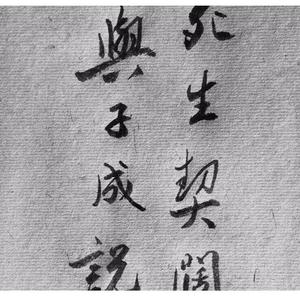 死生契闊
與子成説